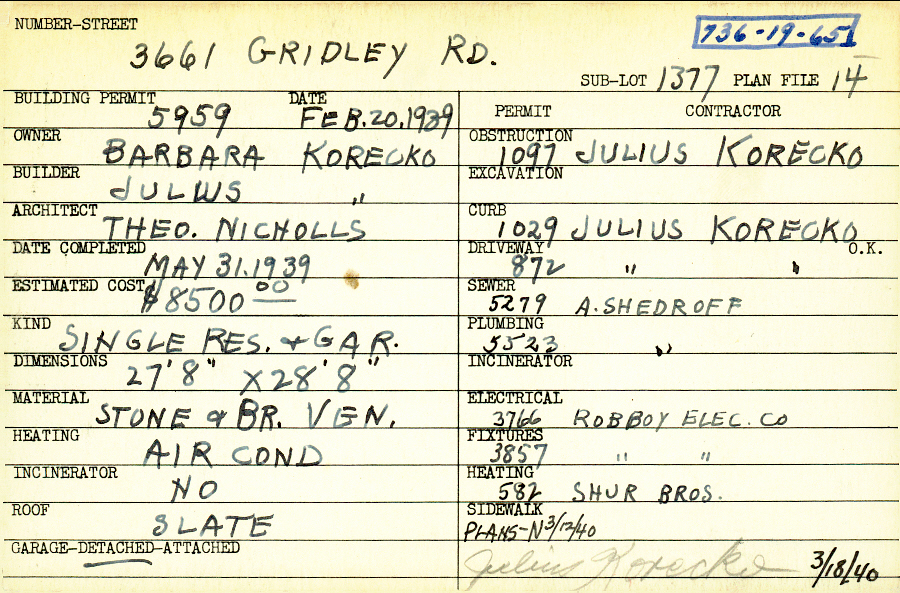 NUMBER-STREET
3661 GRIDLEY RD.
736-19-65
SUB-LOT 1377 PLAN FILE 14
BUILDING PERMIT 5959 DATE FEB.20.1939
OWNER BARBARA KORECKO
BUILDER JULIUS "
ARCHITECT THEO. NICHOLLS
DATE COMPLETED MAY 31.1939
ESTIMATED COST $8500 00
KIND SINGLE RES. & GAR.
DIMENSIONS 27'8" X 28'8"
MATERIAL STONE & BR. VEN.
HEATING AIR COND
INCINERATOR NO
ROOF SLATE
GARAGE-DETACHED-ATTACHED
PERMIT CONTRACTOR
OBSTRUCTION 1097 JULIUS KORECKO
EXCAVATION
CURB 1029 JULIUS KORECKO
DRIVEWAY 872 " " O.K.
SEWER 5279 A. SHEDROFF
PLUMBING 5523 "
INCINERATOR
ELECTRICAL 3766 ROBBOY ELEC. CO
FIXTURES 3857 " "
HEATING 582 SHUR BROS.
SIDEWALK
PLANS-N 3/12/40
Julius Korecko 3/18/40